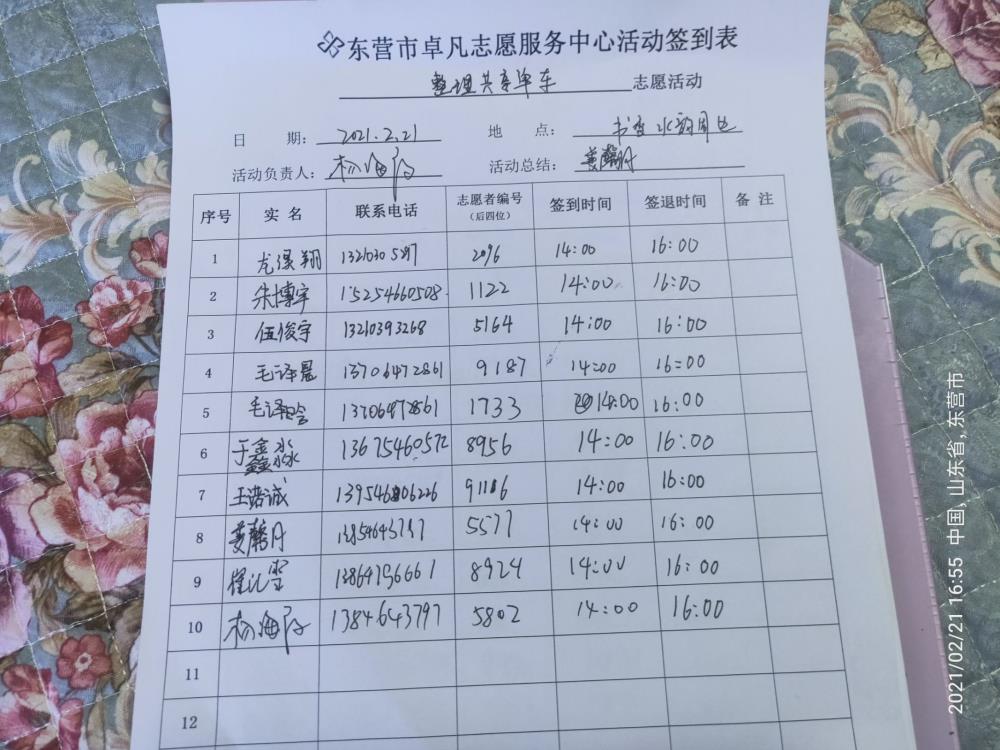 东营市卓凡志愿服务中心活动签到表
整理共享单车 志愿活动
日 期: 2021.2.21 地 点: 书香水韵周边
活动负责人: 杨海 活动总结: 姜馨月
序号 实名 联系电话 志愿者编号(后四位) 签到时间 签退时间 备注
1 尤浸翔 2096 14:00 16:00
2 朱博宇 15254660508 1122 14:00 16:00
3 伍俊宇 13210393268 5164 14:00 16:00
4 毛泽晨 13706472861 9187 14:00 16:00
5 毛泽晗 13706472861 1733 14:00 16:00
6 于鑫淼 13675460572 8956 14:00 16:00
7 王诺诚 9116 14:00 16:00
8 姜馨月 5577 14:00 16:00
9 13864756661 8924 14:00 16:00
10 杨海 1384643797 5802 14:00 16:00
11
12
2021/02/21 16:55 中国,山东省,东营市